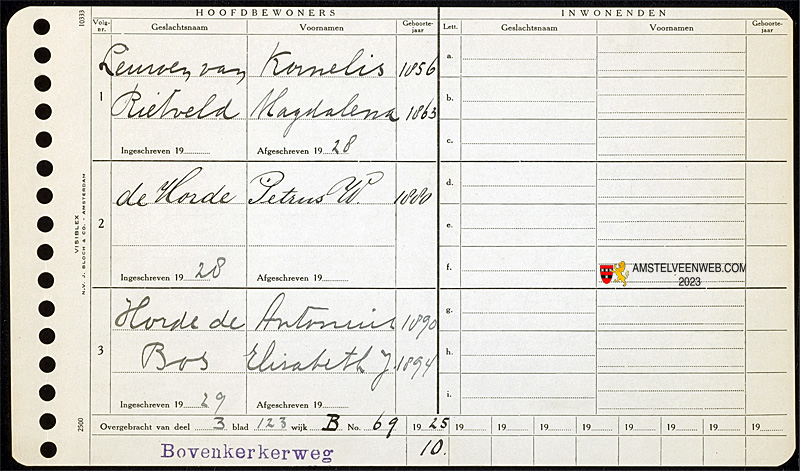 HOOFDBEWONERS INWONENDEN
Volg-nr. Geslachtsnaam Voornamen Geboorte-jaar Lett. Geslachtsnaam Voornamen Geboorte-jaar
Leuwen van Kornelis 1856 a.
1 Rietveld Magdalena 1863 b.
Ingeschreven 19 Afgeschreven 19 28 c.
de Horde Petrus W. 1880 d.
2 e.
Ingeschreven 19 28 Afgeschreven 19 f.
AMSTELVEENWEB.COM
2023
Horde de Antonius 1890 g.
3 Bos Elisabeth J. 1894 h.
Ingeschreven 19 29 Afgeschreven 19 i.
Overgebracht van deel 3 blad 123 wijk B No. 69 19 25 19 19 19 19 19 19 19 19
Bovenkerkerweg 10.
10333
VISIBLEX
N.V. J. BLOCH & CO. - AMSTERDAM
2500